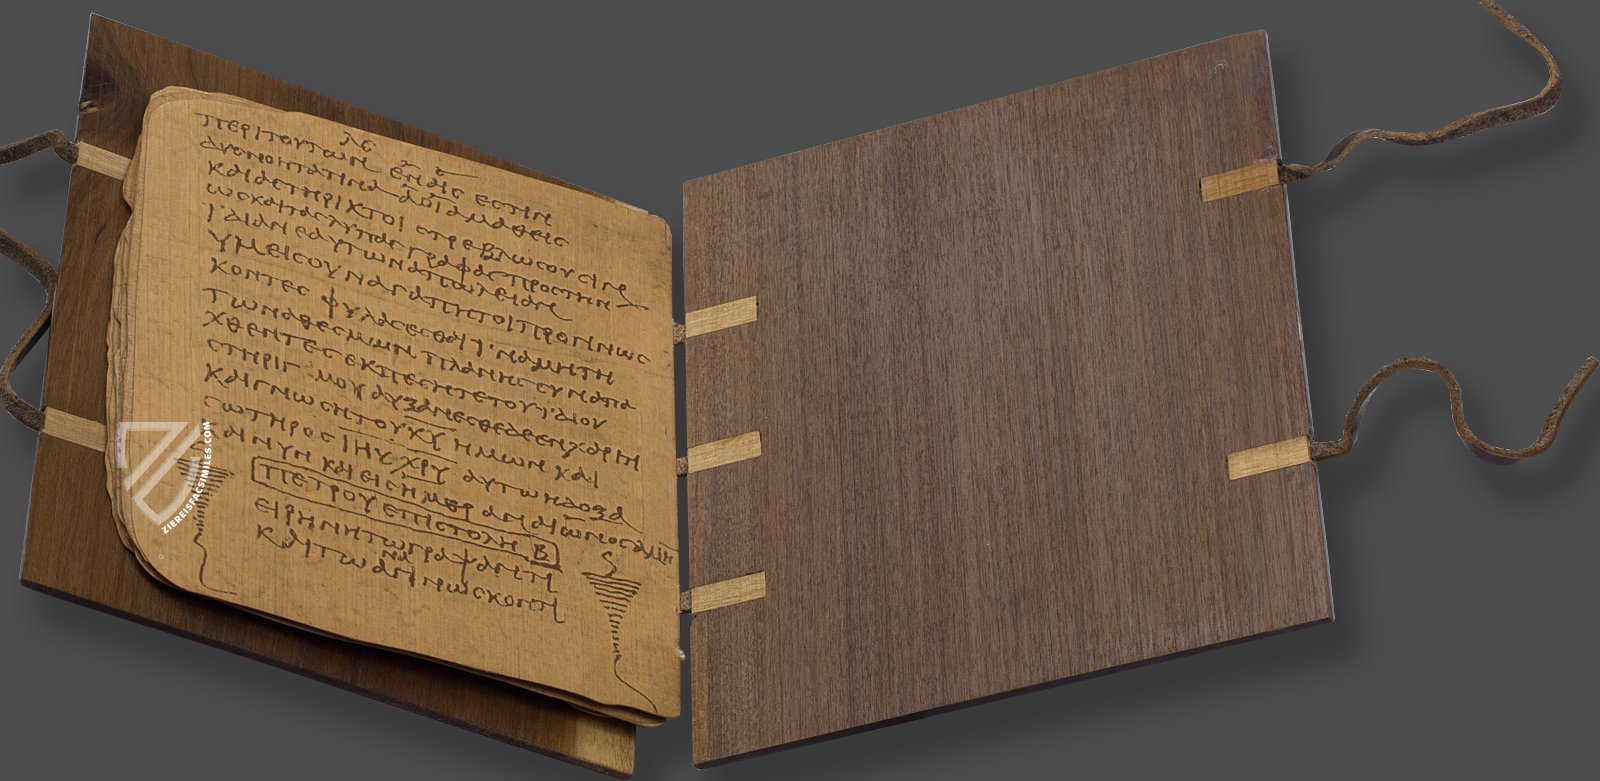 ⲗⲉ
ΠΕΡΙ ΤΟΥΤΩΝ ΕΝ ΑΙϹ ΕϹΤΙΝ
ΔΥϹΝΟΗΤΑ ΤΙΝΑ Α ΟΙ ΑΜΑΘΕΙϹ
ΚΑΙ ΑϹΤΗΡΙΚΤΟΙ ϹΤΡΕΒΛΩϹΟΥϹΙΝ
ΩϹ ΚΑΙ ΤΑϹ ΛΥΠΑϹ ΓΡΑΦΑϹ ΠΡΟϹ ΤΗΝ
ΙΔΙΑΝ ΕΑΥΤΩΝ ΑΠΩΛΕΙΑΝ
ΥΜΕΙϹ ΟΥΝ ΑΓΑΠΗΤΟΙ ΠΡΟΓΙΝΩϹ
ΚΟΝΤΕϹ ΦΥΛΑϹΕϹΘΑΙ ΙΝΑ ΜΗ ΤΗ
ΤΩΝ ΑΘΕϹΜΩΝ ΠΛΑΝΗϹ ϹΥΝΑΠΑ
ΧΘΕΝΤΕϹ ΕΚΠΕϹΗΤΕ ΤΟΥ ΙΔΙΟΥ
ϹΤΗΡΙΓΜΟΥ ΑΥΞΑΝΕϹΘΕ ΔΕ ΕΝ ΧΑΡΙΤΙ
ΚΑΙ ΓΝΩϹΙ ΤΟΥ ΚΥ ΗΜΩΝ ΚΑΙ
ϹΩΤΗΡΟϹ ΙΗΥ ΧΡΥ ΑΥΤΩ Η ΔΟΞΑ
ΚΑΙ ΝΥΝ ΚΑΙ ΕΙϹ ΗΜΕΡΑΝ ΑΙΩΝΟϹ ΑΜΗΝ
ΠΕΤΡΟΥ ΕΠΙϹΤΟΛΗ Β
ΕΙΡΗΝΗ ΤΩ ΓΡΑΨΑΝΤΙ
ΚΑΙ ΤΩ ΑΝΑΓΙΝΩϹΚΟΝΤΙ
ZIEREISFACSIMILES.COM